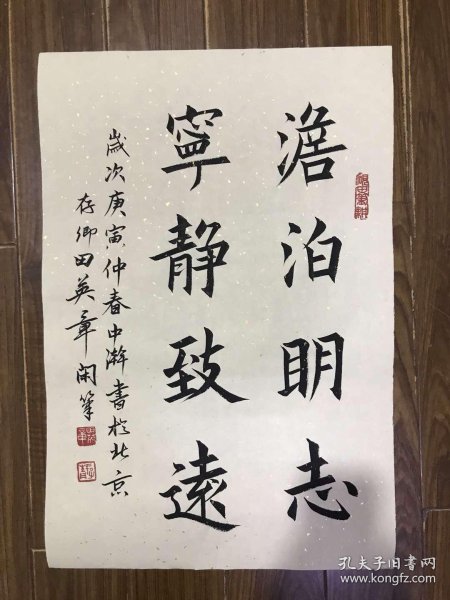 澹泊明志
寧静致遠
歲次庚寅仲春中澣書於北京
存卿田英章閑筆
孔夫子旧书网
www.kongfz.com